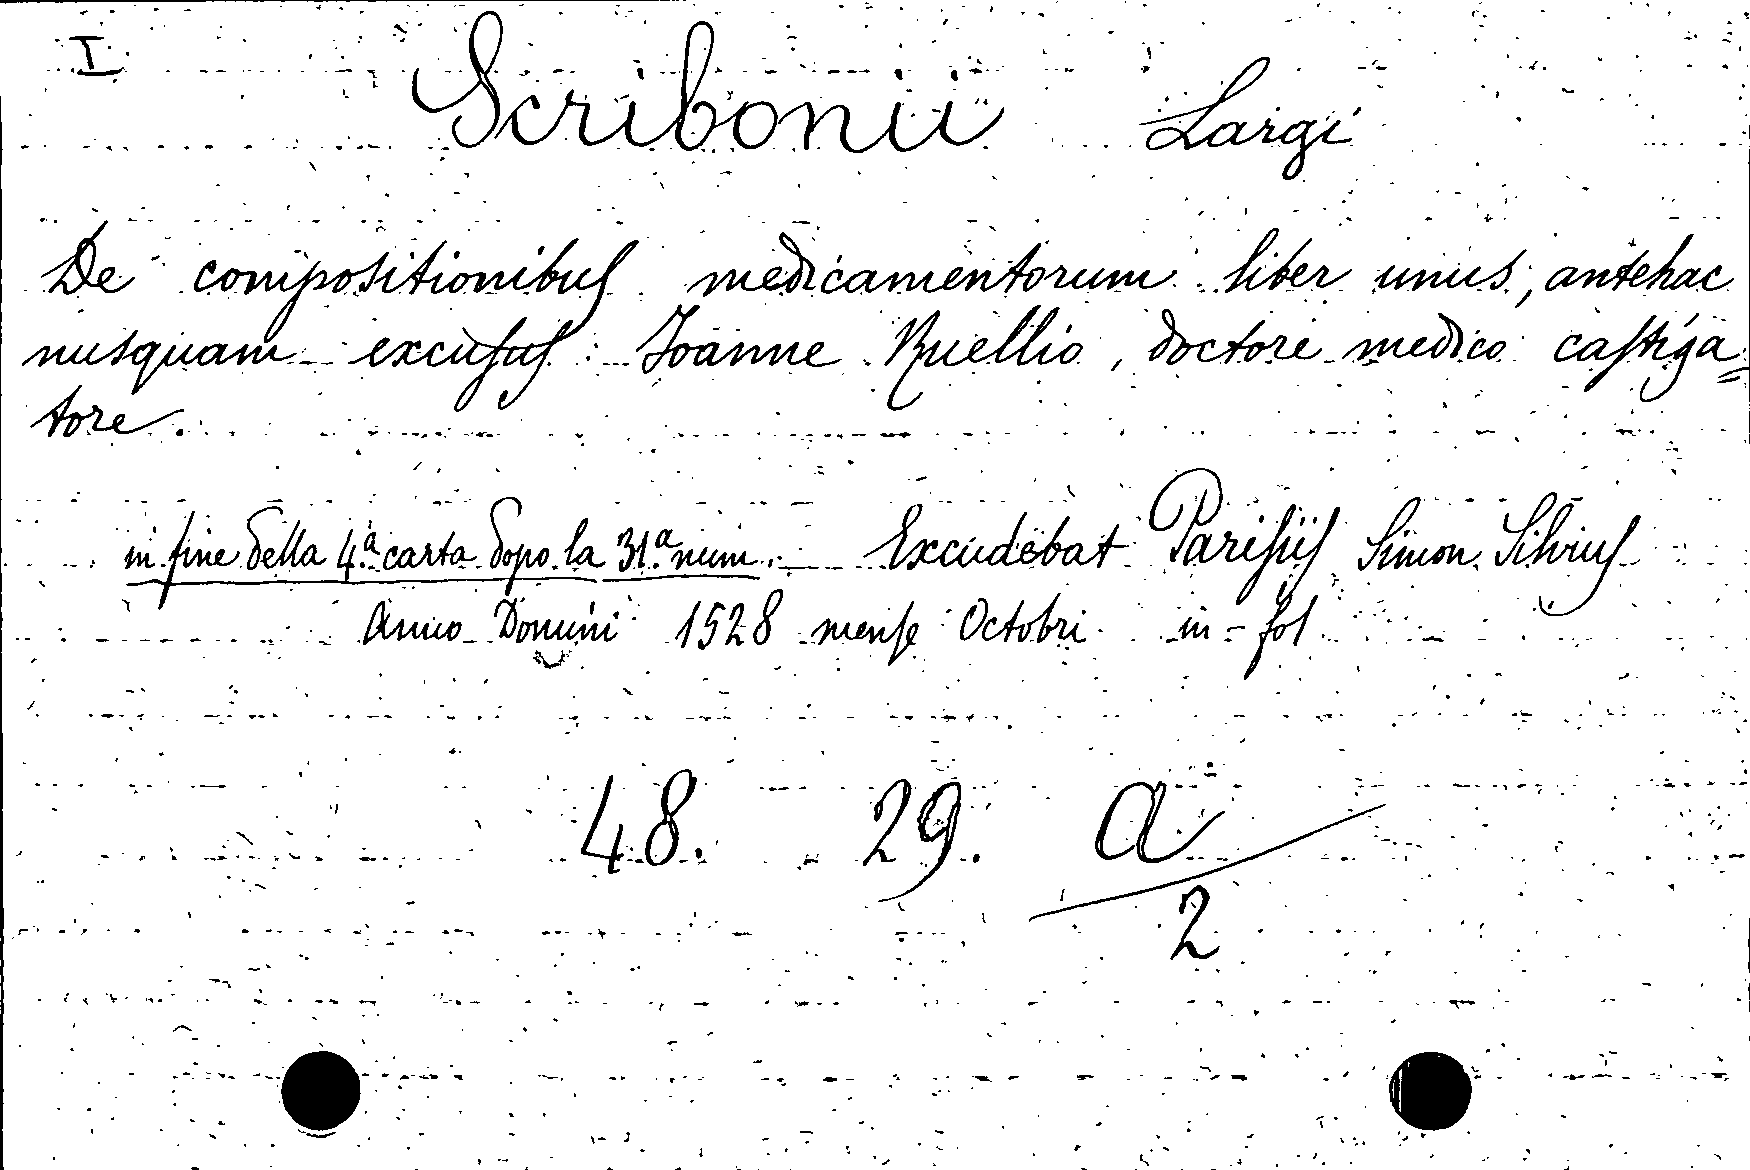 I
Scribonii Largi
De compositionibus medicamentorum liber unus, antehac
nusquam excusus: Joanne Ruellio, doctore medico castiga=
tore.
in fine della 4.ª carta dopo la 31.ª num. Excudebat Parisiis Simon Silvius
Anno Domini 1528 mense Octobri in-fol
48. 29. a
2